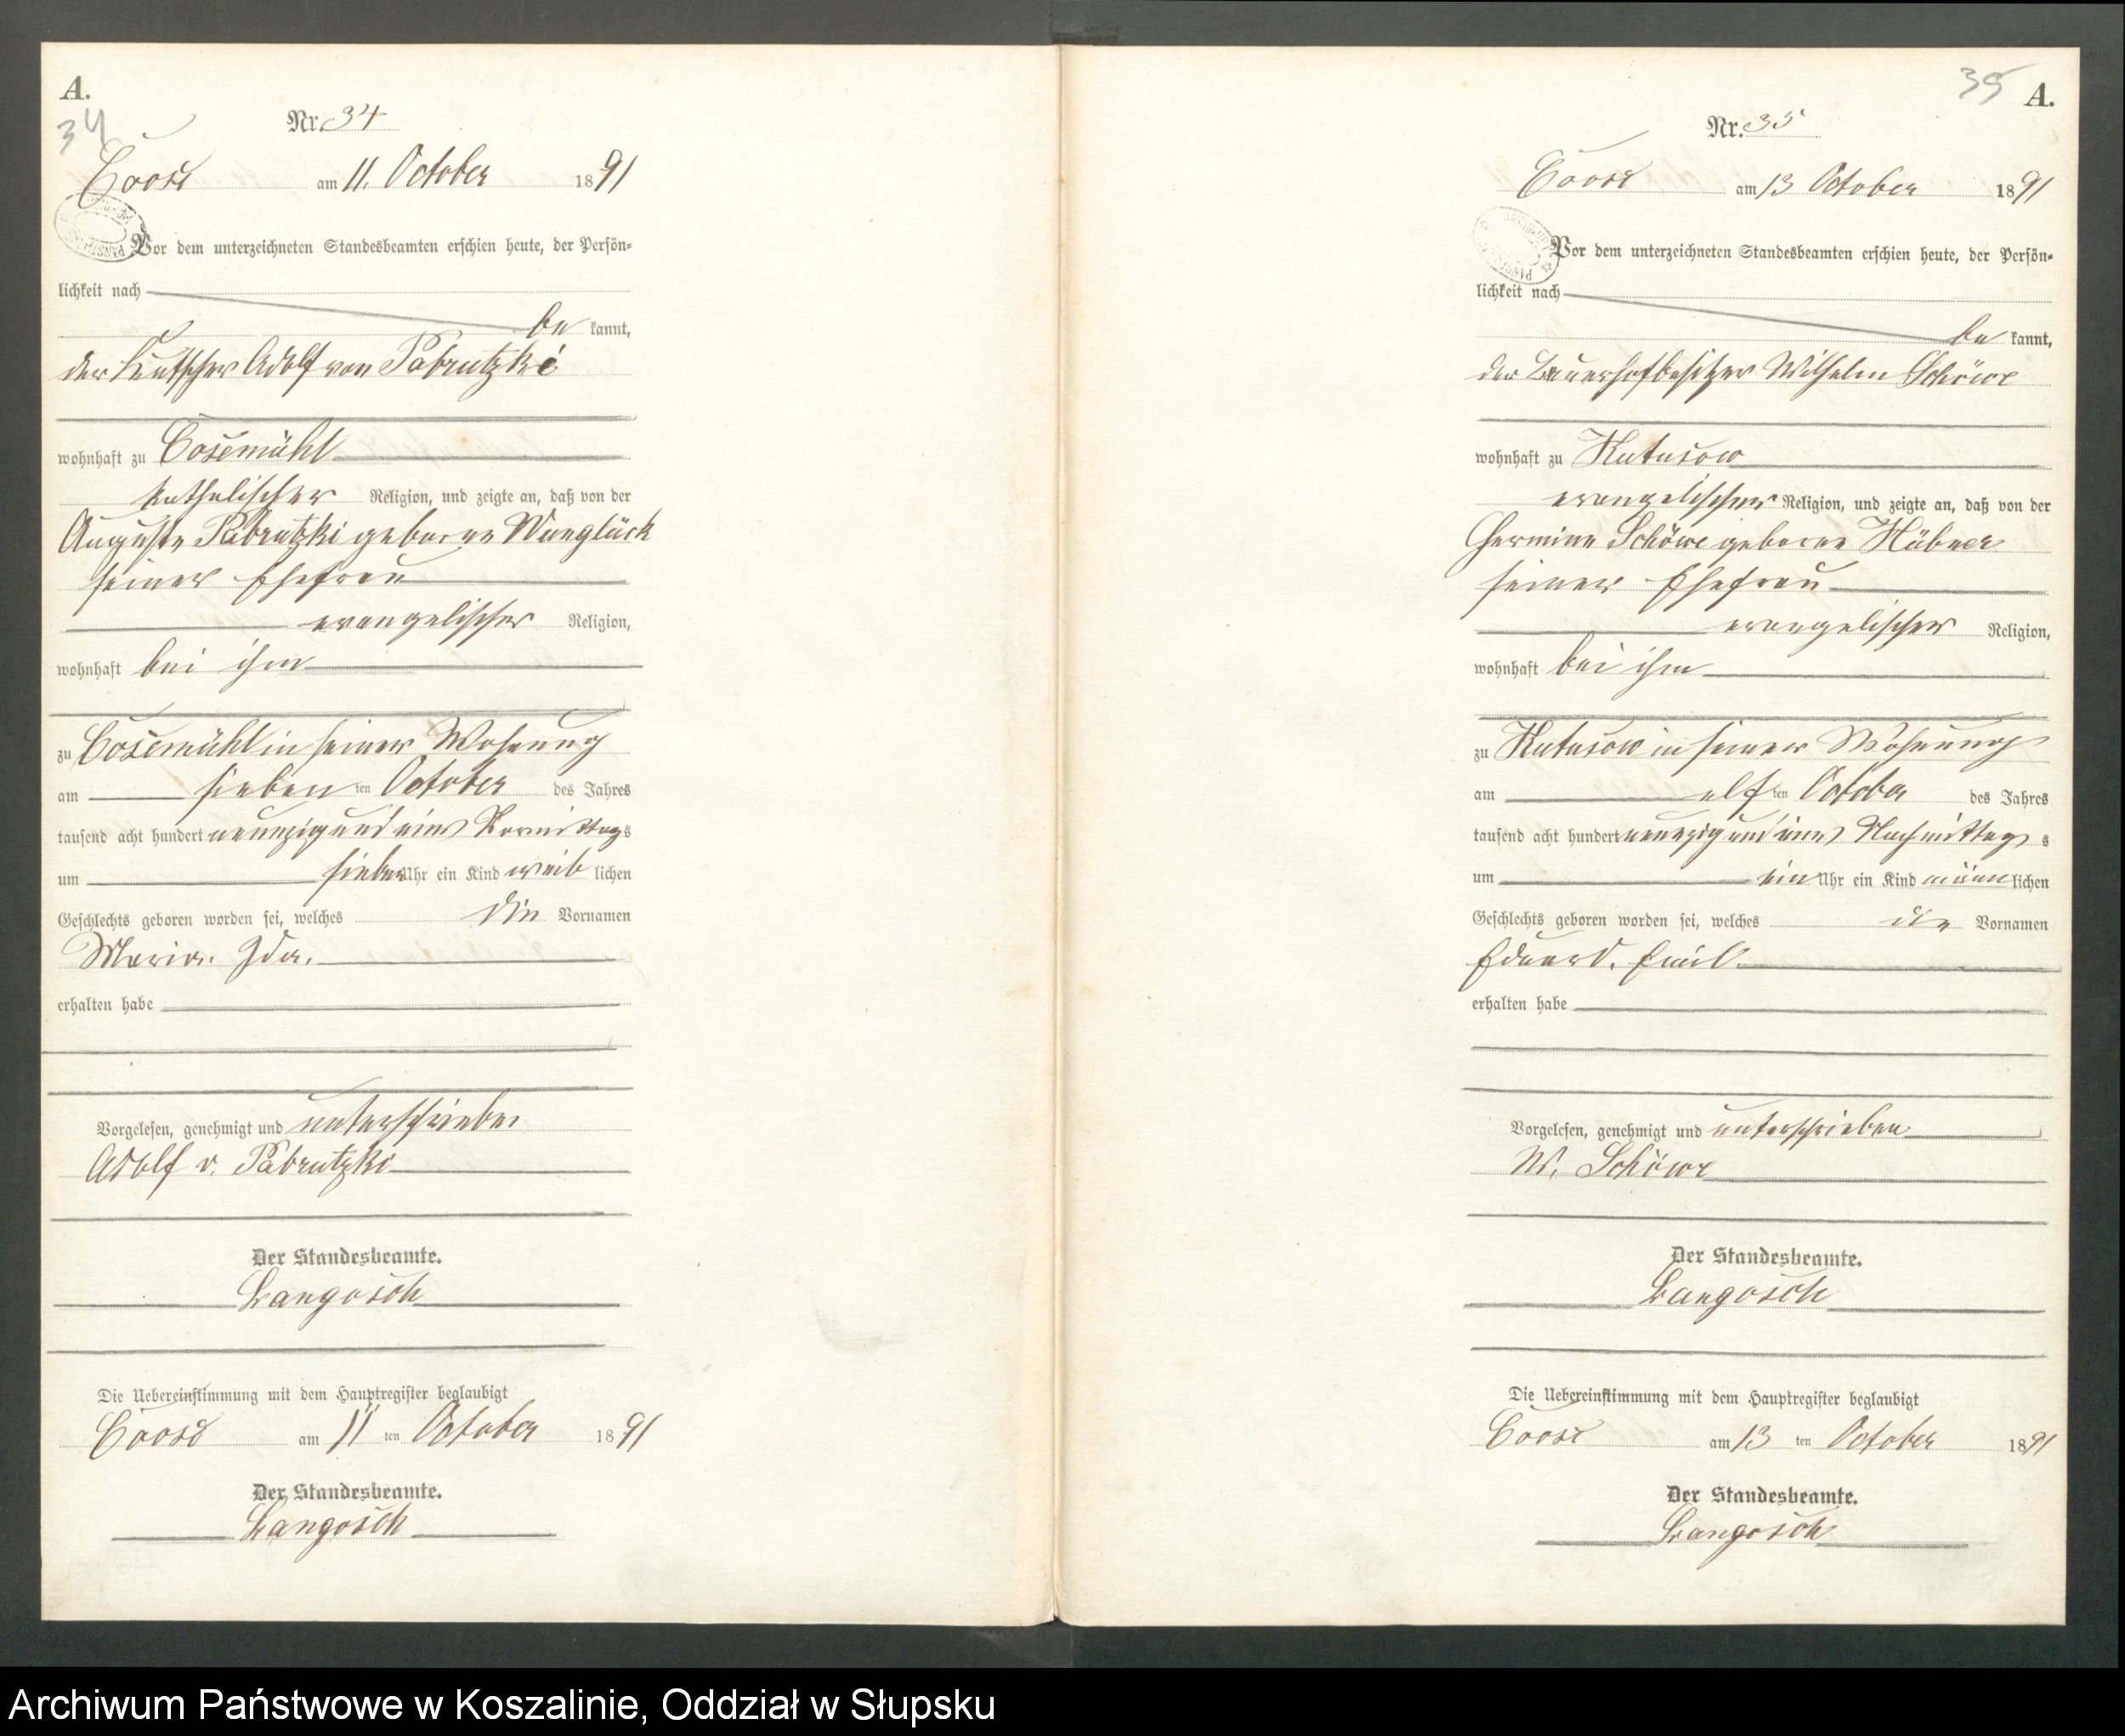 A.
34
Nr. 34
Coose am 11. October 1891
Vor dem unterzeichneten Standesbeamten erschien heute, der Persön-
lichkeit nach
be kannt,
der Kutscher Adolf von Pabrutzki
wohnhaft zu Cosemühl
katholischer Religion, und zeigte an, daß von der
Auguste Pabrutzki geborne
seiner Ehefrau
evangelischer Religion,
wohnhaft bei ihm
zu Cosemühl in seiner Wohnung
am sieben ten October des Jahres
tausend acht hundert neunzig und eins Vormittags
um sieben Uhr ein Kind weib lichen
Geschlechts geboren worden sei, welches die Vornamen
Maria. Ida.
erhalten habe
Vorgelesen, genehmigt und unterschrieben
Adolf v. Pabrutzki
Der Standesbeamte.
Langosch
Die Uebereinstimmung mit dem Hauptregister beglaubigt
Coose am 11 ten October 1891
Der Standesbeamte.
Langosch
35 A.
Nr. 35
Coose am 13 October 1891
Vor dem unterzeichneten Standesbeamten erschien heute, der Persön-
lichkeit nach
be kannt,
der Bauerhofbesitzer Wilhelm Schöwe
wohnhaft zu Kutusow
evangelischer Religion, und zeigte an, daß von der
Hermine Schöwe geborne Hübner
seiner Ehefrau
evangelischer Religion,
wohnhaft bei ihm
zu Kutusow in seiner Wohnung
am elf ten October des Jahres
tausend acht hundert neunzig und eins Nachmittag s
um ein Uhr ein Kind männ lichen
Geschlechts geboren worden sei, welches die Vornamen
Eduard. Emil.
erhalten habe
Vorgelesen, genehmigt und unterschrieben
W. Schöwe
Der Standesbeamte.
Langosch
Die Uebereinstimmung mit dem Hauptregister beglaubigt
Coose am 13 ten October 1891
Der Standesbeamte.
Langosch
Archiwum Państwowe w Koszalinie, Oddział w Słupsku